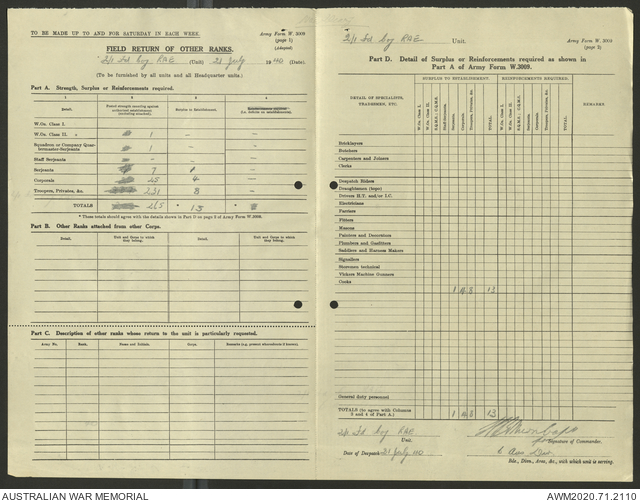 TO BE MADE UP TO AND FOR SATURDAY IN EACH WEEK.
Army Form W. 3009
(page 1)
(Adapted)
FIELD RETURN OF OTHER RANKS.
2/1 Fd Coy RAE (Unit) 21 July 1940 (Date).
(To be furnished by all units and all Headquarter units.)
Part A. Strength, Surplus or Reinforcements required.
1 2 3 4
Detail.
Surplus to Establishment.
W.Os. Class I.
W.Os. Class II. 1 –
Squadron or Company Quar-
termaster-Serjeants 1 –
Staff Serjeants – –
Serjeants 7 1 –
Corporals 25 4 –
Troopers, Privates, &c. 231 8 –
TOTALS 265 * 13 *
* These totals should agree with the details shown in Part D on page 2 of Army Form W.3009.
Part B. Other Ranks attached from other Corps.
Detail. Unit and Corps to which they belong. Detail. Unit and Corps to which they belong.
Part C. Description of other ranks whose return to the unit is particularly requested.
Army No. Rank. Name and Initials. Corps. Remarks (e.g. present whereabouts if known).
2/1 Fd Coy RAE Unit.
Army Form W. 3009
(page 2)
Part D. Detail of Surplus or Reinforcements required as shown in
Part A of Army Form W.3009.
DETAIL OF SPECIALISTS,
TRADESMEN, ETC.
SURPLUS TO ESTABLISHMENT.
REINFORCEMENTS REQUIRED.
REMARKS
W.Os. Class I.
W.Os. Class II.
Staff-Serjeants
Serjeants.
Corporals.
Troopers, Privates, &c.
TOTAL
W.Os. Class I.
W.Os. Class II.
Serjeants.
Corporals.
Troopers, Privates, &c.
TOTAL.
Bricklayers
Butchers
Carpenters and Joiners
Clerks
Despatch Riders
Draughtsmen (topo)
Drivers H.T. and/or I.C.
Electricians
Farriers
Fitters
Masons
Painters and Decorators
Plumbers and Gasfitters
Saddlers and Harness Makers
Signallers
Storemen technical
Vickers Machine Gunners
Cooks
1 4 8 13
General duty personnel
TOTALS (to agree with Columns
3 and 4 of Part A.) 1 4 8 13
2/1 Fd Coy RAE
Unit.
Signature of Commander.
Date of Despatch 21 July 40
6 Aus Div
Bde., Divn., Area, &c., with which unit is serving.
AUSTRALIAN WAR MEMORIAL
AWM2020.71.2110